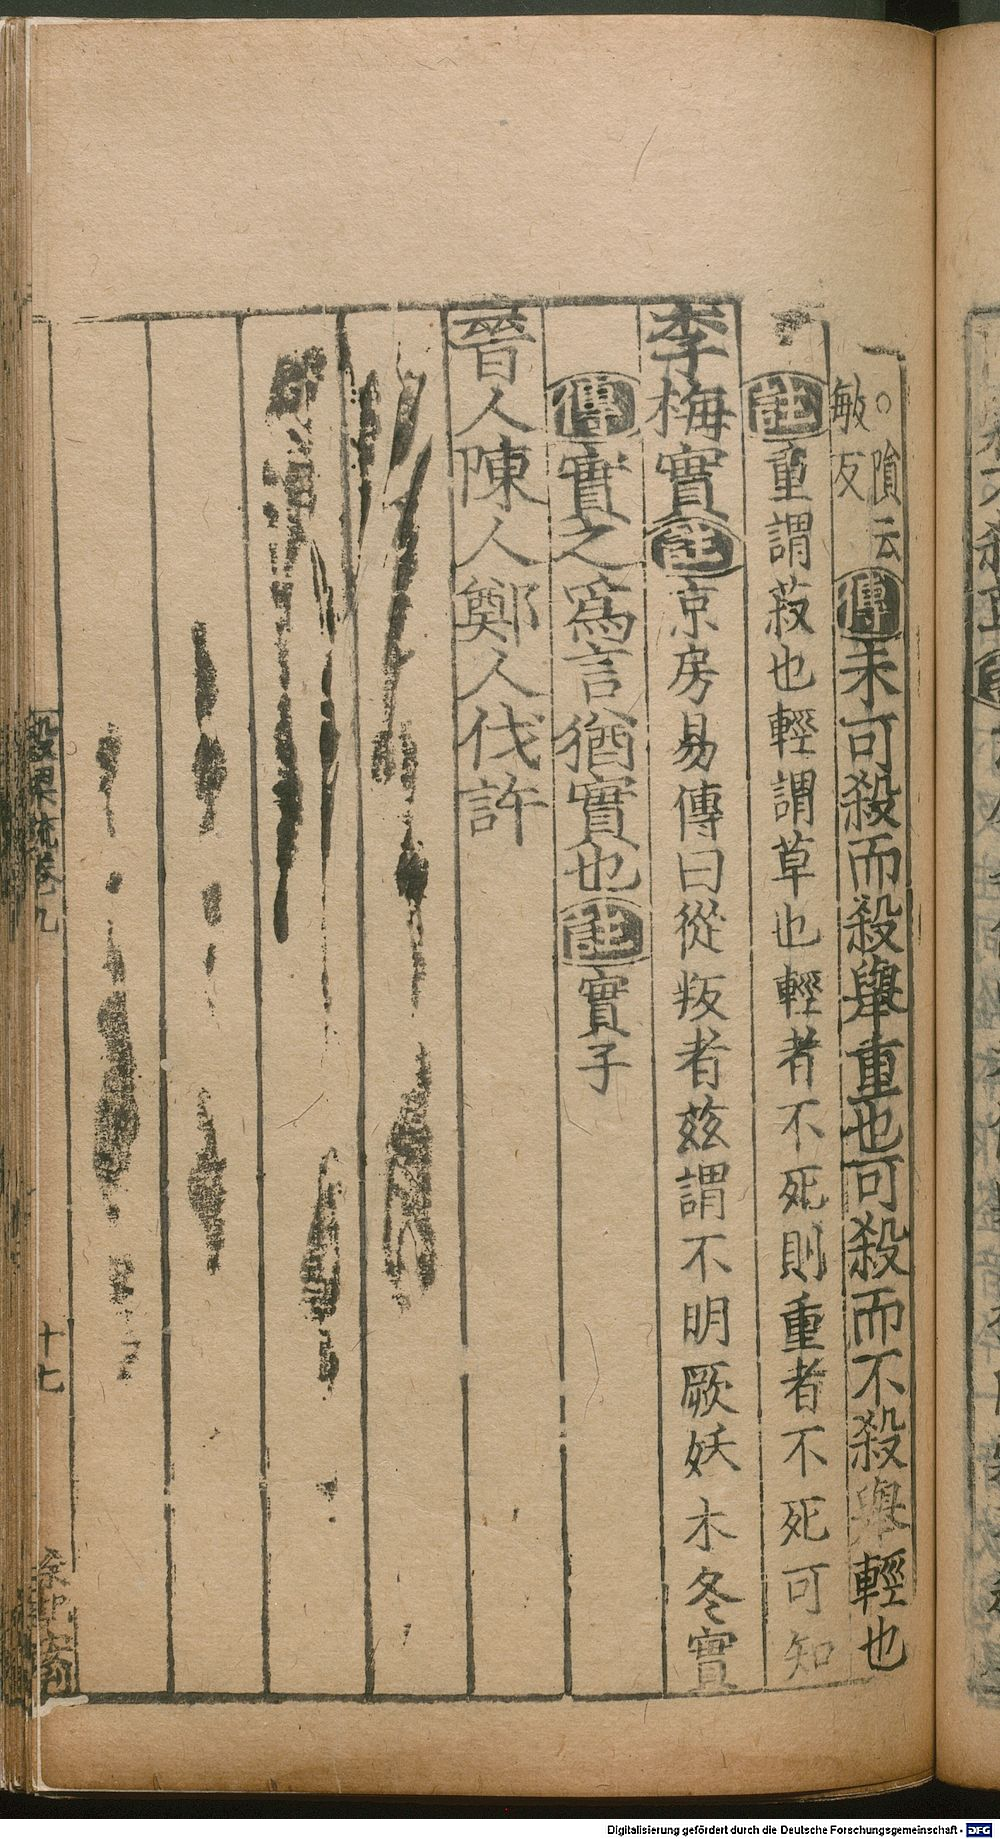 ○隕云
敏反
傳未可殺而殺舉重也可殺而不殺舉輕也
註重謂菽也輕謂草也輕者不死則重者不死可知
李梅實註京房易傳曰從叛者兹謂不明厥妖木冬實
傳實之爲言猶實也註實子
晉人陳人鄭人伐許
穀梁疏卷九
十七
Digitalisierung gefördert durch die Deutsche Forschungsgemeinschaft - DFG